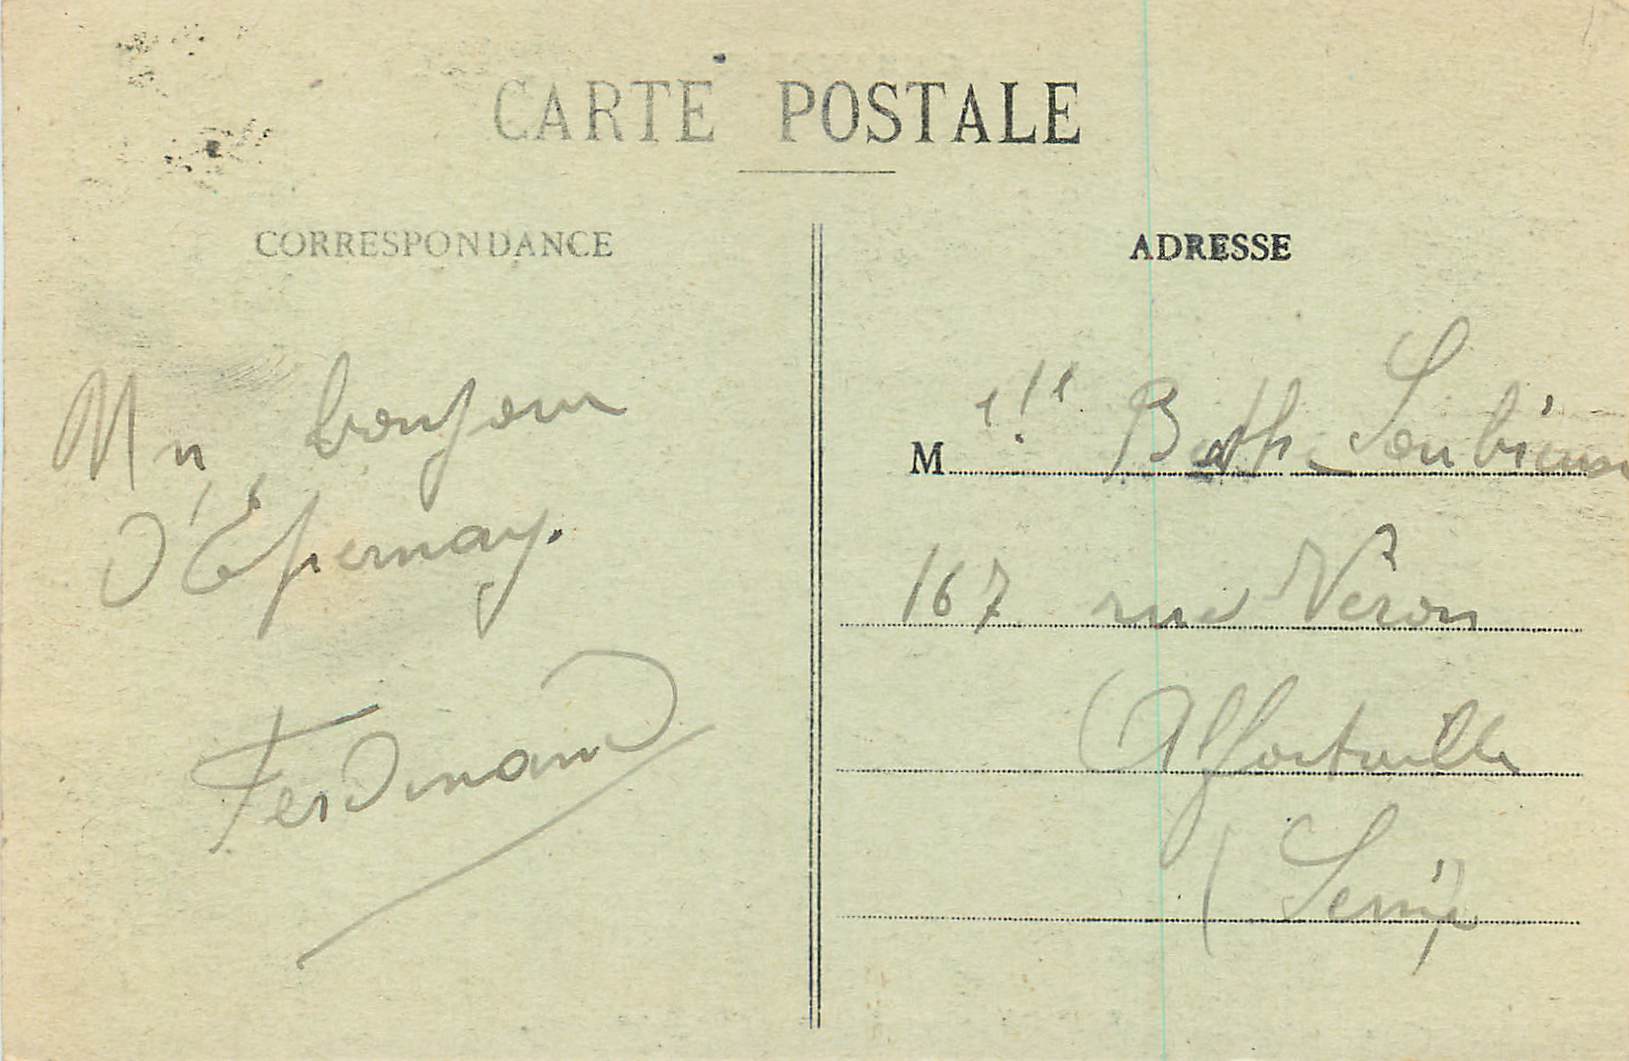 CARTE POSTALE
CORRESPONDANCE
Un bonjour
d'Épernay.
Ferdinand
ADRESSE
Melle Berthe
167 rue Véron
Alfortville
(Seine)